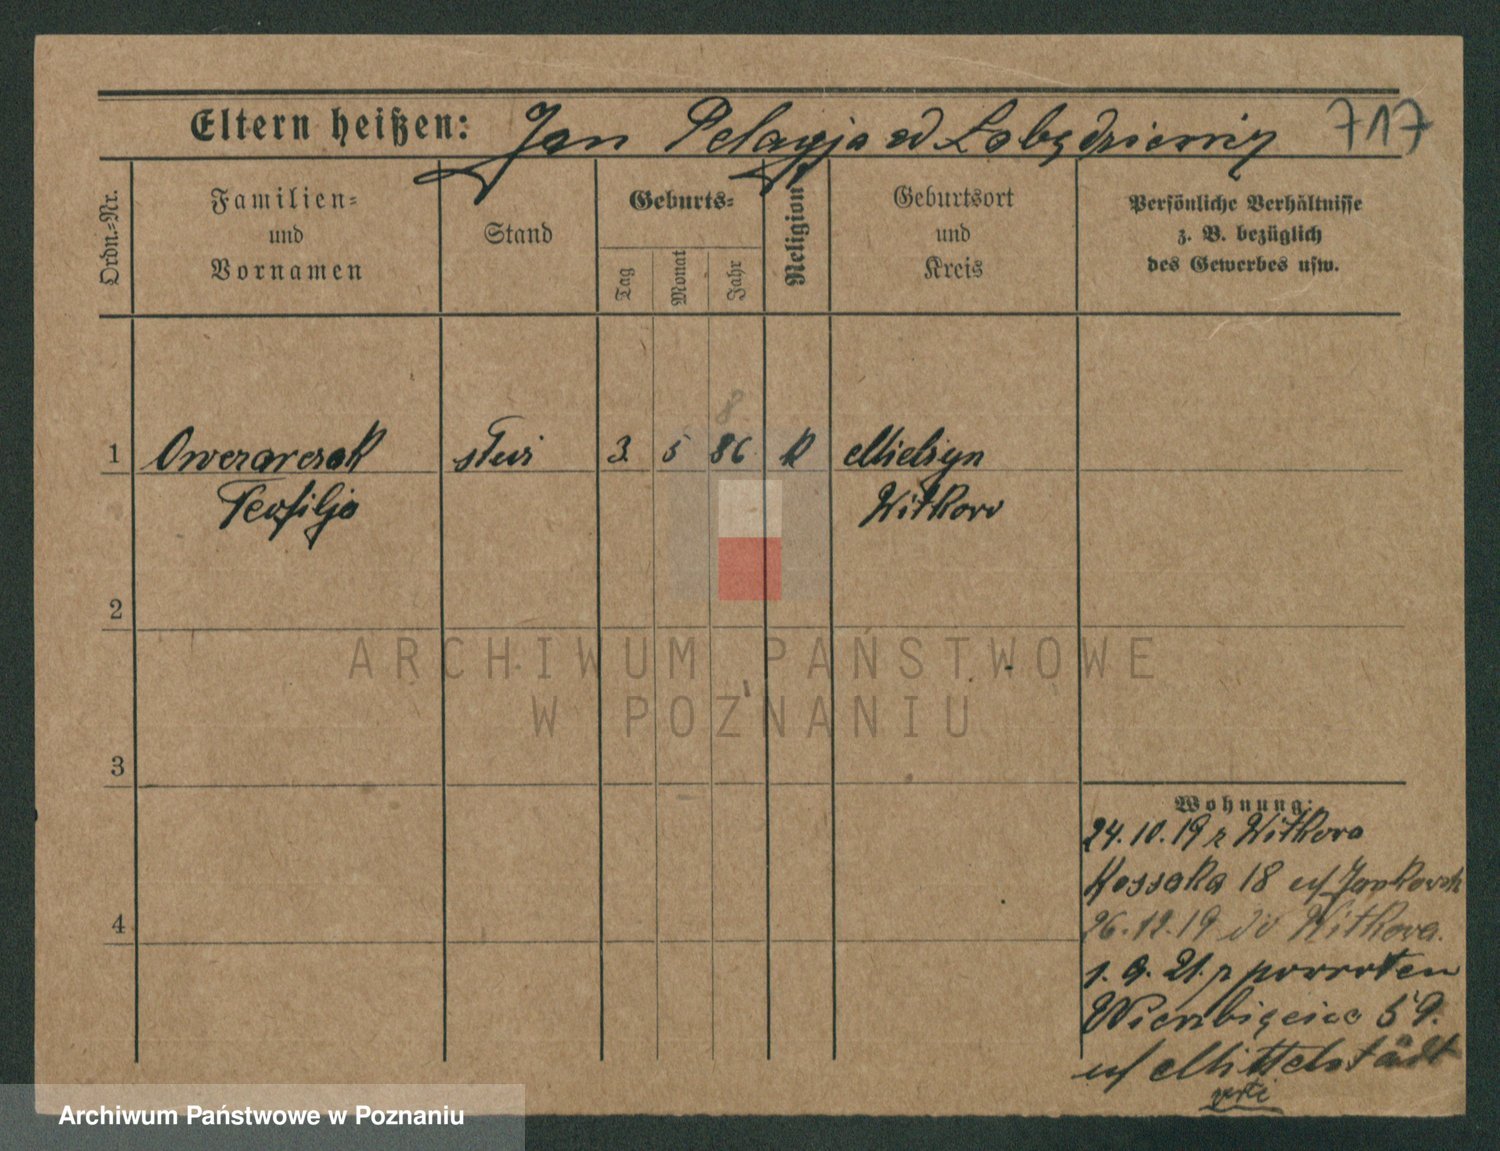 Eltern heißen: Jan Pelagja
717
Ordn.-Nr.
Familien-
und
Vornamen
Stand
Geburts-
Tag
Monat
Jahr
Religion
Geburtsort
und
Kreis
Persönliche Verhältnisse
z. B. bezüglich
des Gewerbes usw.
8
1 Owczarczak 3. 5 86 K Mielżyn
Teofilja Witkowo
2
ARCHIWUM PAŃSTWOWE
W POZNANIU
3
Wohnung:
24.10.19 z Witkowa
Kossaka 18
4
26.12.19 do Witkowa.
1. 9. 21. z powrotem
Wierzbięcice 59.
Mittelstädt
Archiwum Państwowe w Poznaniu